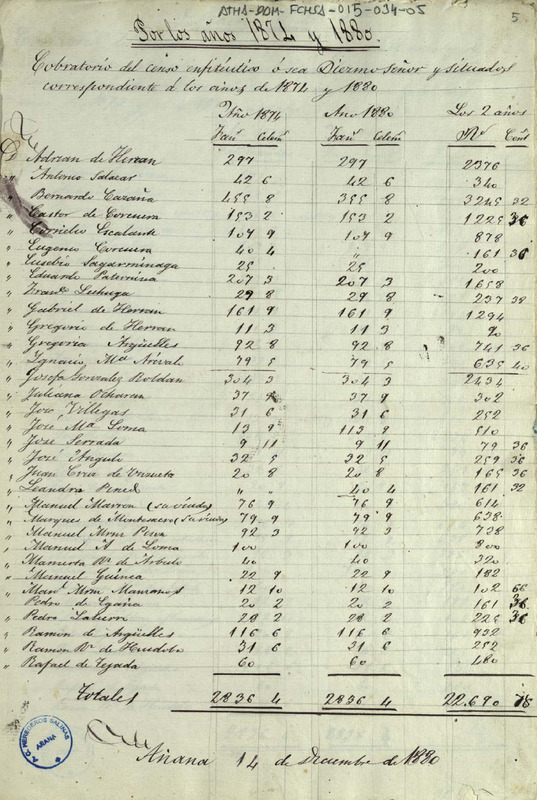 ATHA-DDM-FCHSA-015-034-05
5
Por los años 1874 y 1880.
Cobratorio del censo enfitéutico ó sea Diezmo Señor y situados
correspondiente á los años de 1874 y 1880
Año 1874 Año 1880 Los 2 años
Fan Celem Fan Celem Rs Cent
D Adrian de Herran 297 297 2376
" Antonio Salazar 42 6 42 6 340
" Bernardo Cazaña 455 8 355 8 3245 32
" Castor de Corcuera 153 2 153 2 1225 36
" Cornelio Escalante 109 9 109 9 878
" Eugenio Corcuera 40 4 " 161 36
" Eusebio Sagarminaga 25 25 200
" Eduardo Paternina 207 3 207 3 1658
" Franco Lechuga 29 8 29 8 237 38
" Gabriel de Herran 161 9 161 9 1294
" Gregorio de Herran 11 3 11 3 90
" Gregoria Argüelles 92 8 92 8 741 36
" Ignacio Ma 79 5 79 5 635 40
" Josefa Gonzalez Roldan 304 3 304 3 2434
" Juliana Ocharan 37 9 37 9 302
" José Villegas 31 6 31 6 252
" José Ma Loma 13 9 113 9 510
" José Serrada 9 11 9 11 79 36
" José Angulo 32 5 32 5 259 36
" Juan Cruz de Urrueta 20 8 20 8 165 36
" Leandra " " 40 4 161 32
" Manuel Marron (su viuda) 76 9 76 9 614
" Marques de Montesacro (su viuda) 79 9 79 9 638
" Manuel Mrm Perea 92 3 92 3 738
" Manuel A. de Loma 100 100 800
" Mamerta Rz de Arbulo 40 40 320
" Manuel Guinea 22 9 22 9 182
" Mrm Manzanos 12 10 12 10 102 66
" Pedro de Egaña 20 2 20 2 161 36
" Pedro 28 2 28 2 225 36
" Ramon de Argüelles 116 6 116 6 932
" Ramon Rz de Huidobro 31 6 31 6 252
" Rafael de Tejada 60 60 480
Totales 2836 4 2836 4 22.690 78
Añana 14 de Diciembre de 1880
A.C. HEREDEROS SALINAS
AÑANA